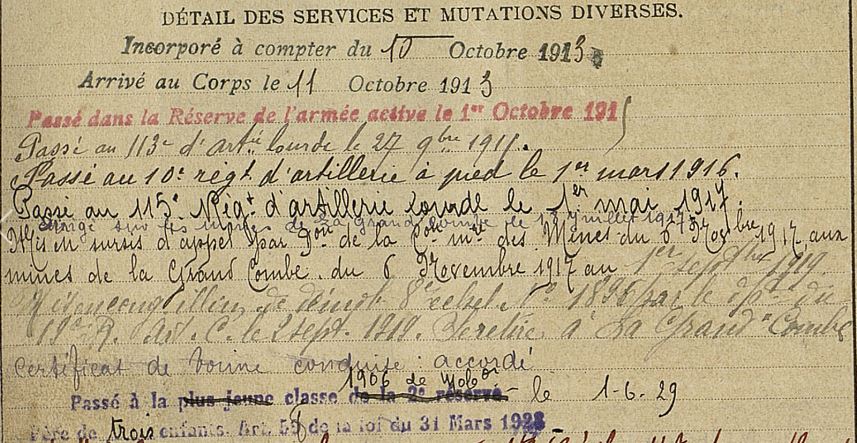 DÉTAIL DES SERVICES ET MUTATIONS DIVERSES.
Incorporé à compter du 10 Octobre 1913
Arrivé au Corps le 11 Octobre 1913
Passé dans la Réserve de l'armée active le 1er Octobre 1915
Passé au 113e d'artie lourde le 27 9bre 1915.
Passé au 10e régt d'artillerie à pied le 1er mars 1916.
Passé au 115e Régt d'artillerie lourde le 1er mai 1917.
sur les mines de La Grand Combe le 13 juillet 1917
Mis en sursis d'appel par de la des Mines du 6 9bre 1917 aux
mines de la Grand Combe. du 6 Novembre 1917 au 1er septbre 1919.
Mis en congé illim. de démob. 8e échel. No 1896 par le dpt du
19e R. Art. C. le 2 sept. 1919. Se retire à La Grand'Combe
Certificat de bonne conduite accordé
1906 de mobon
Passé à la plus jeune classe de la 2e réserve le 1-6-29
Père de trois enfants. Art. 58 de la loi du 31 Mars 1928